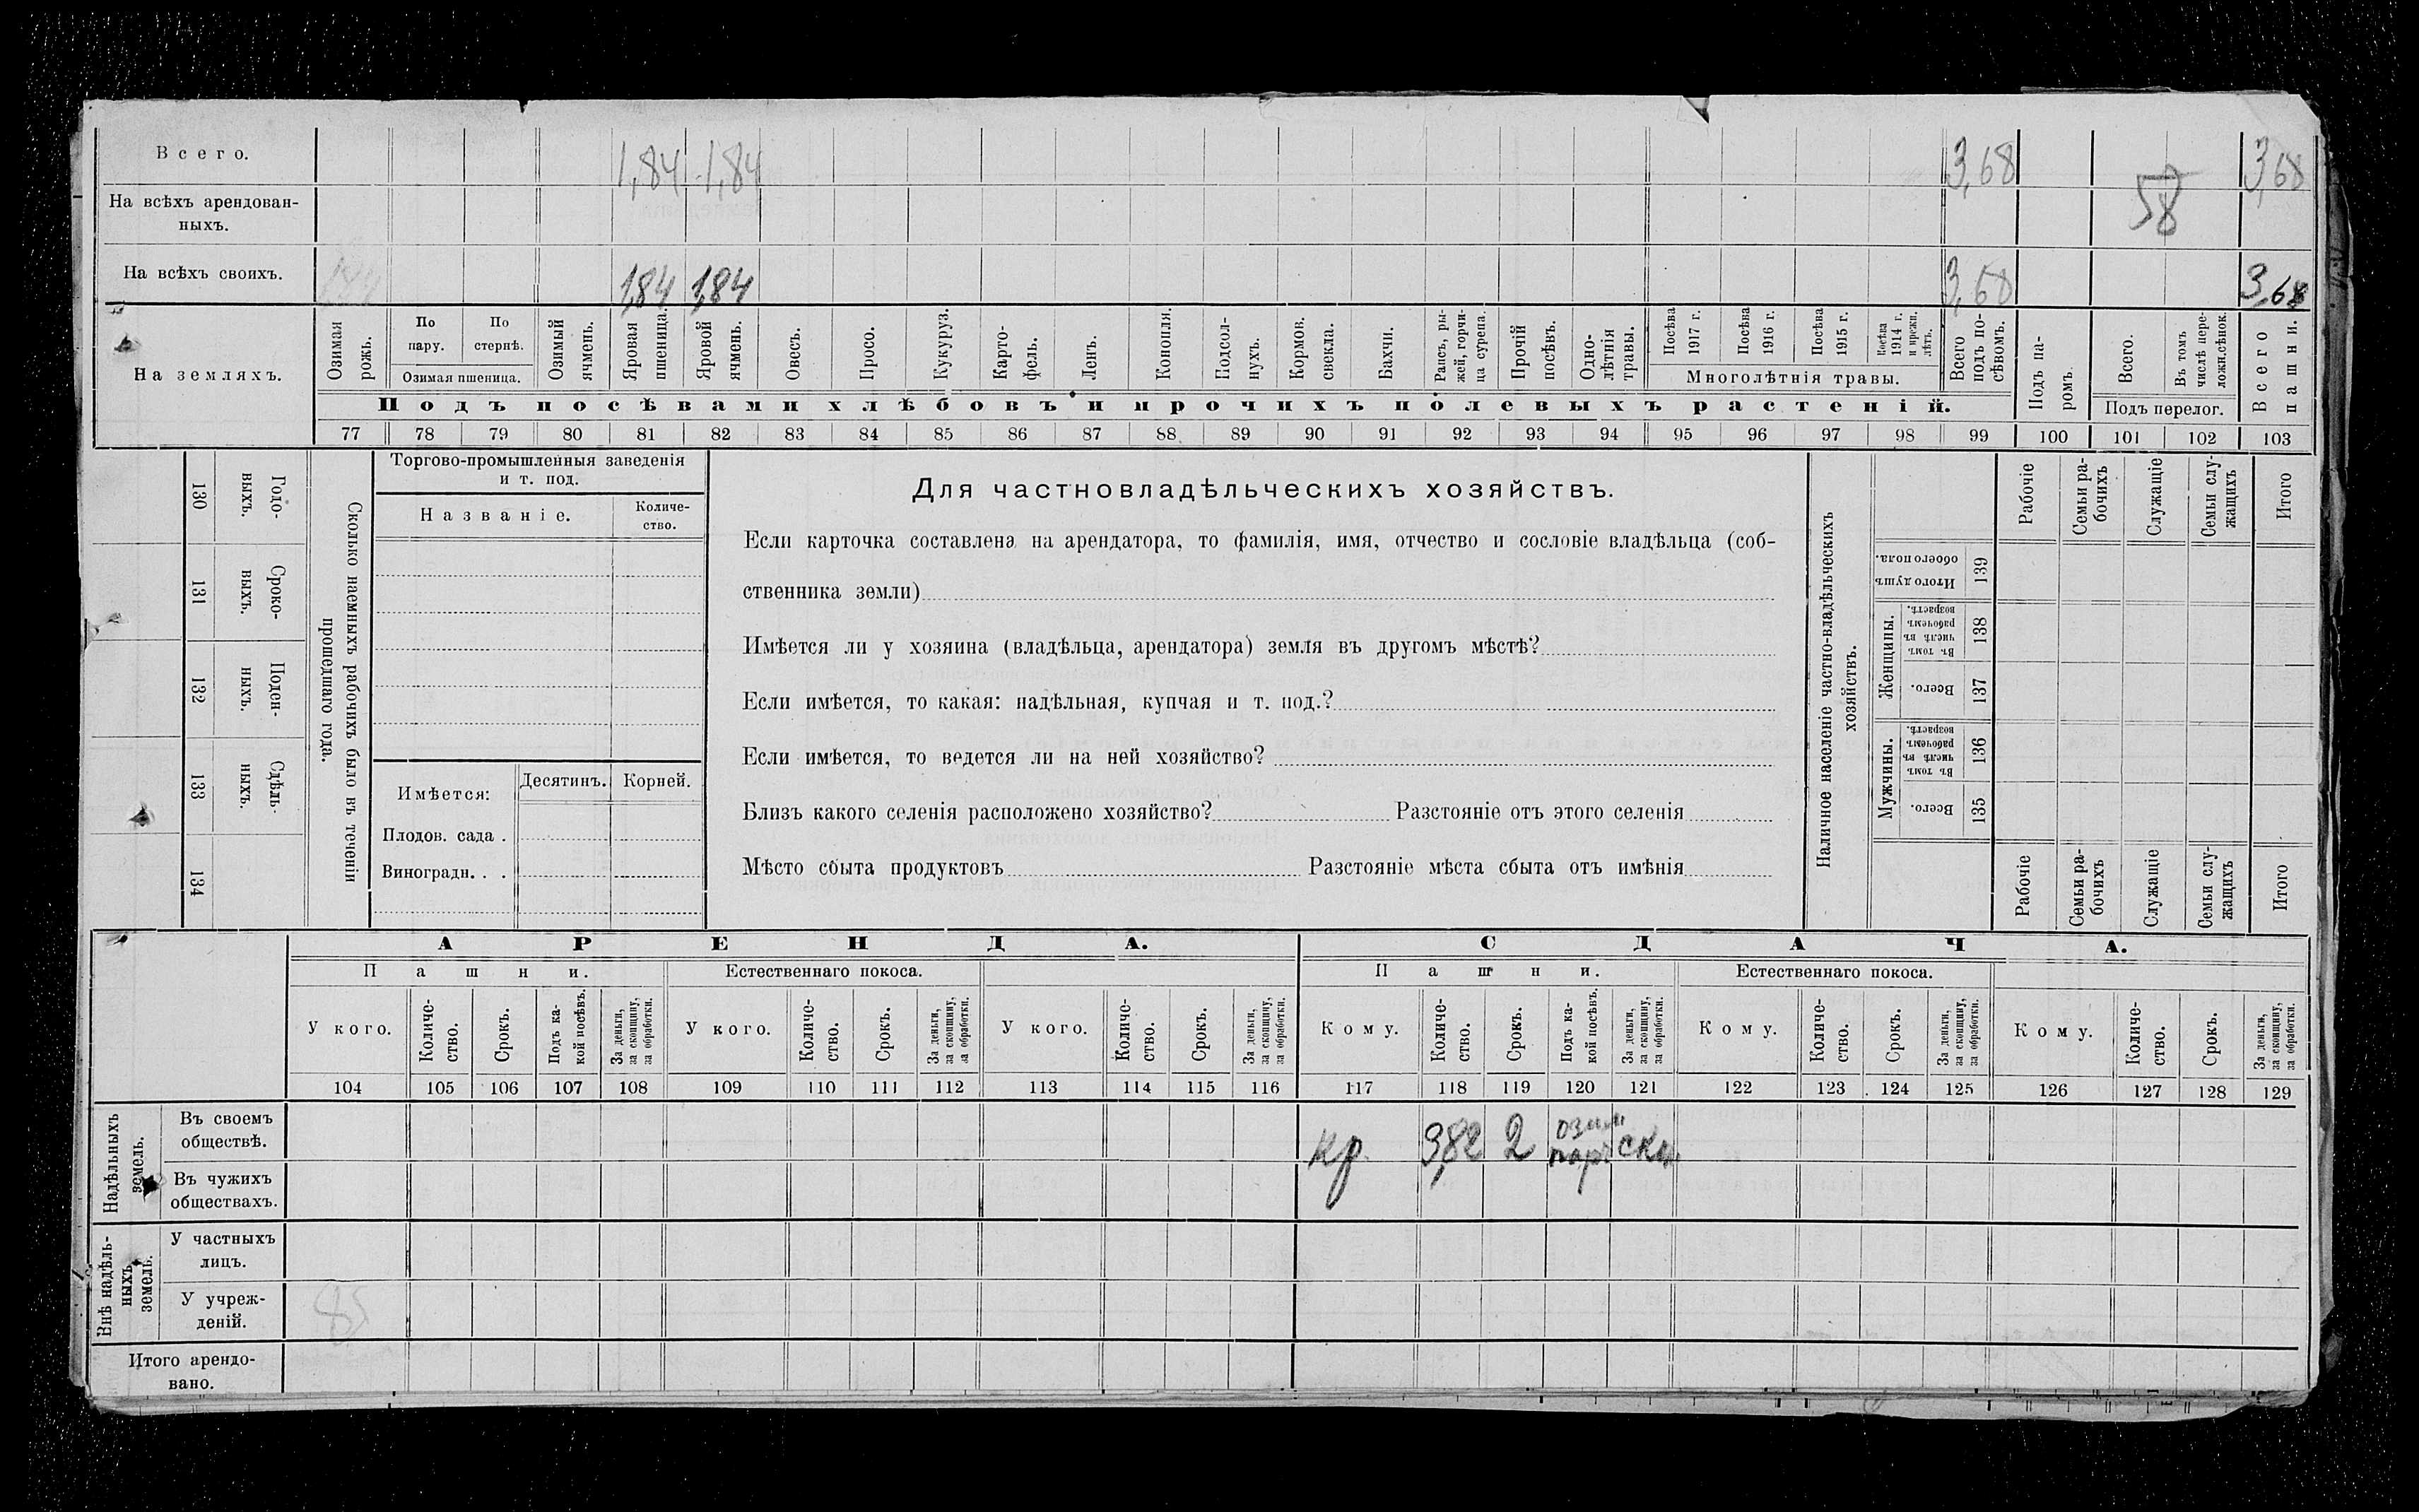 Всего. 1,84 1,84 3,68 3,68
На всѣхъ арендован-
ныхъ. 58
На всѣхъ своихъ. 1,84 1,84 3,68 3,68
На земляхъ.
Озимая рожь.
По пару.
По стернѣ.
Озимая пшеница.
Озимый ячмень.
Яровая пшеница.
Яровой ячмень.
Овесъ.
Просо.
Кукуруз.
Карто-
фель.
Ленъ.
Конопля.
Подсол-
нухъ.
Кормов.
свекла.
Бахчи.
Рапсъ, ры-
жей, горчи-
ца сурепа.
Прочій
посѣвъ.
Одно-
лѣтнія
травы.
Посѣва
1917 г.
Посѣва
1916 г.
Посѣва
1915 г.
Посѣва
1914 г.
и прежн.
лѣтъ.
Многолѣтнія травы.
Всего
подъ по-
сѣвомъ.
Подъ па-
ромъ.
Всего.
Въ томъ
числѣ пере-
ложн.сѣнок.
Подъ перелог.
Всего
пашни.
Подъ посѣвами хлѣбовъ и прочихъ полевыхъ растеній.
77 78 79 80 81 82 83 84 85 86 87 88 89 90 91 92 93 94 95 96 97 98 99 100 101 102 103
130 Годо-
выхъ.
131 Сроко-
выхъ.
132 Поден-
ныхъ.
133 Сдѣль-
ныхъ.
134
Сколько наемныхъ рабочихъ было въ теченіи
прошедшаго года.
Торгово-промышленныя заведенія
и т. под.
Названіе.
Количе-
ство.
Имѣется:
Десятинъ. Корней.
Плодов. сада .
Виноградн. . .
Для частновладѣльческихъ хозяйствъ.
Если карточка составлена на арендатора, то фамилія, имя, отчество и сословіе владѣльца (соб-
ственника земли)
Имѣется ли у хозяина (владѣльца, арендатора) земля въ другомъ мѣстѣ?
Если имѣется, то какая: надѣльная, купчая и т. под.?
Если имѣется, то ведется ли на ней хозяйство?
Близъ какого селенія расположено хозяйство? Разстояніе отъ этого селенія
Мѣсто сбыта продуктовъ Разстояніе мѣста сбыта отъ имѣнія
Наличное населеніе частно-владѣльческихъ
хозяйствъ.
Рабочіе
Семьи ра-
бочихъ
Служащіе
Семьи слу-
жащихъ
Итого
Итого душъ
обоего пола.
139
Женщины.
Въ томъ
числѣ въ
рабочемъ
возрастѣ.
138
Всего.
137
Мужчины.
Въ томъ
числѣ въ
рабочемъ
возрастѣ.
136
Всего.
135
Рабочіе
Семьи ра-
бочихъ
Служащіе
Семьи слу-
жащихъ
Итого
АРЕНДА. СДАЧА.
Пашни. Естественнаго покоса. Пашни. Естественнаго покоса.
У кого.
Количе-
ство.
Срокъ.
Подъ ка-
кой посѣвъ.
За деньги,
за скопщину,
за обработки.
У кого.
Количе-
ство.
Срокъ.
За деньги,
за скопщину,
за обработки.
У кого.
Количе-
ство.
Срокъ.
За деньги,
за скопщину,
за обработки.
Кому.
Количе-
ство.
Срокъ.
Подъ ка-
кой посѣвъ.
За деньги,
за скопщину,
за обработки.
Кому.
Количе-
ство.
Срокъ.
За деньги,
за скопщину,
за обработки.
Кому.
Количе-
ство.
Срокъ.
За деньги,
за скопщину,
за обработки.
104 105 106 107 108 109 110 111 112 113 114 115 116 117 118 119 120 121 122 123 124 125 126 127 128 129
Надѣльныхъ
земель.
Въ своемъ
обществѣ.
кр. 2 озим
Въ чужихъ
обществахъ.
Внѣ надѣль-
ныхъ
земель.
У частныхъ
лицъ.
У учреж-
деній.
Итого арендо-
вано.